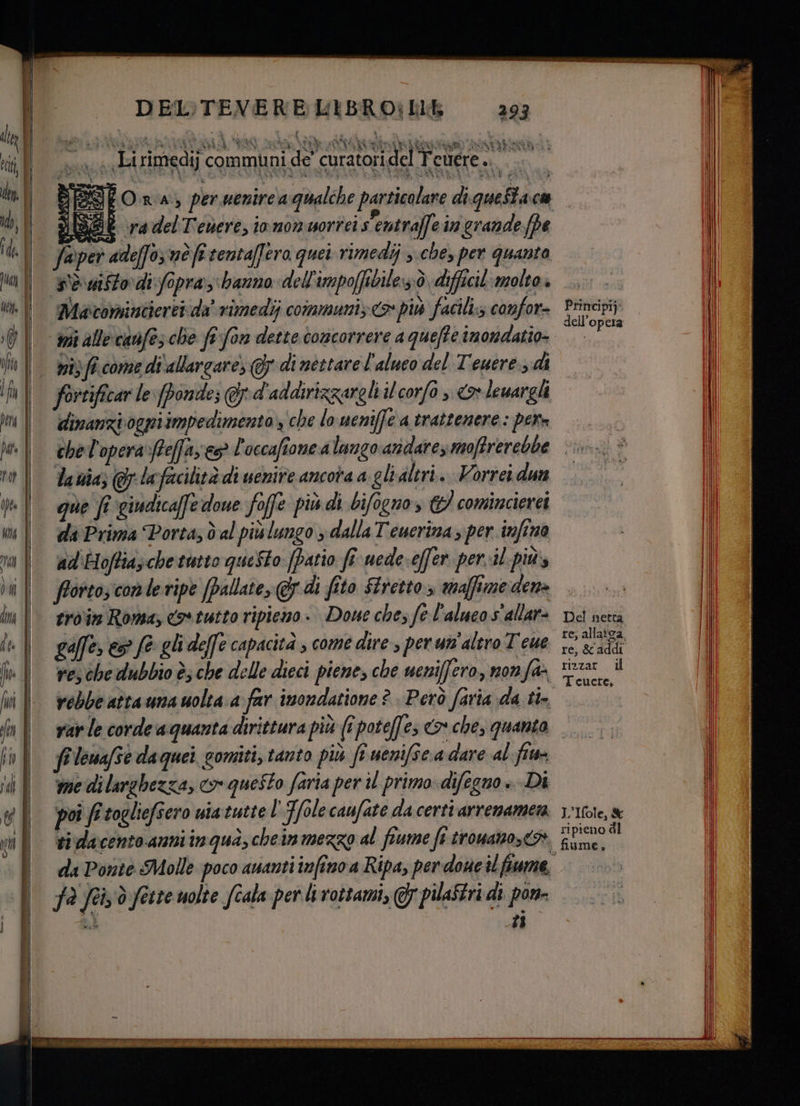 DEL TEVERE LIBRO III. 293
Li rimedij communi de' curatori del Teuere.
ORA, per uenire a qualche particolare di questa cu
ra del Teuere, io non uorrei s'entrasse in grande spe
sa per adesso, nè si tentassero quei rimedij, che, per quanto
s'è uisto di sopra, hanno dell'impossibile, ò difficil molto.
Ma comincierei da' rimedij communi, & più facili, confor-
mi alle cause, che si son dette concorrere a queste inondatio-
ni; si come di allargare, & di nettare l'alueo del Teuere, di
fortificar le sponde; & d'addirizzargli il corso, & leuargli
dinanzi ogni impedimento, che lo uenisse a trattenere: per-
che l'opera stessa, & l'occasione a lungo andare, mostrerebbe
la uia, & la facilità di uenire ancora a gli altri. Vorrei dun
que si giudicasse doue fosse più di bisogno, & comincierei
da Prima Porta, ò al più lungo, dalla Teuerina, per infino
ad Hostia, che tutto questo spatio si uede esser per il più,
storto, con le ripe spallate, & di sito stretto, massime den-
tro in Roma, & tutto ripieno. Doue che, se l'alueo s'allar-
gasse, & se gli desse capacità, come dire, per un'altro Teue
re, che dubbio è, che delle dieci piene, che uenissero, non sa-
rebbe atta una uolta a far inondatione? Però saria da ti-
rar le corde a quanta dirittura più si potesse, & che, quanto
si leuasse da quei gomiti, tanto più si uenisse a dare al fiu-
me di larghezza, & questo saria per il primo disegno. Di
poi si togliessero uia tutte l'Isole causate da certi arrenamen
ti da cento anni in quà, che in mezzo al fiume si trouano, &
da Ponte Molle poco auanti infino a Ripa, per doue il fiume
fà sei, ò sette uolte scala per li rottami, & pilastri di pon-
ti
Principij
dell'opera
Del netta
re, allarga
re, & addi
rizzar il
Teuere,
L'Isole, &
ripieno del
fiume.